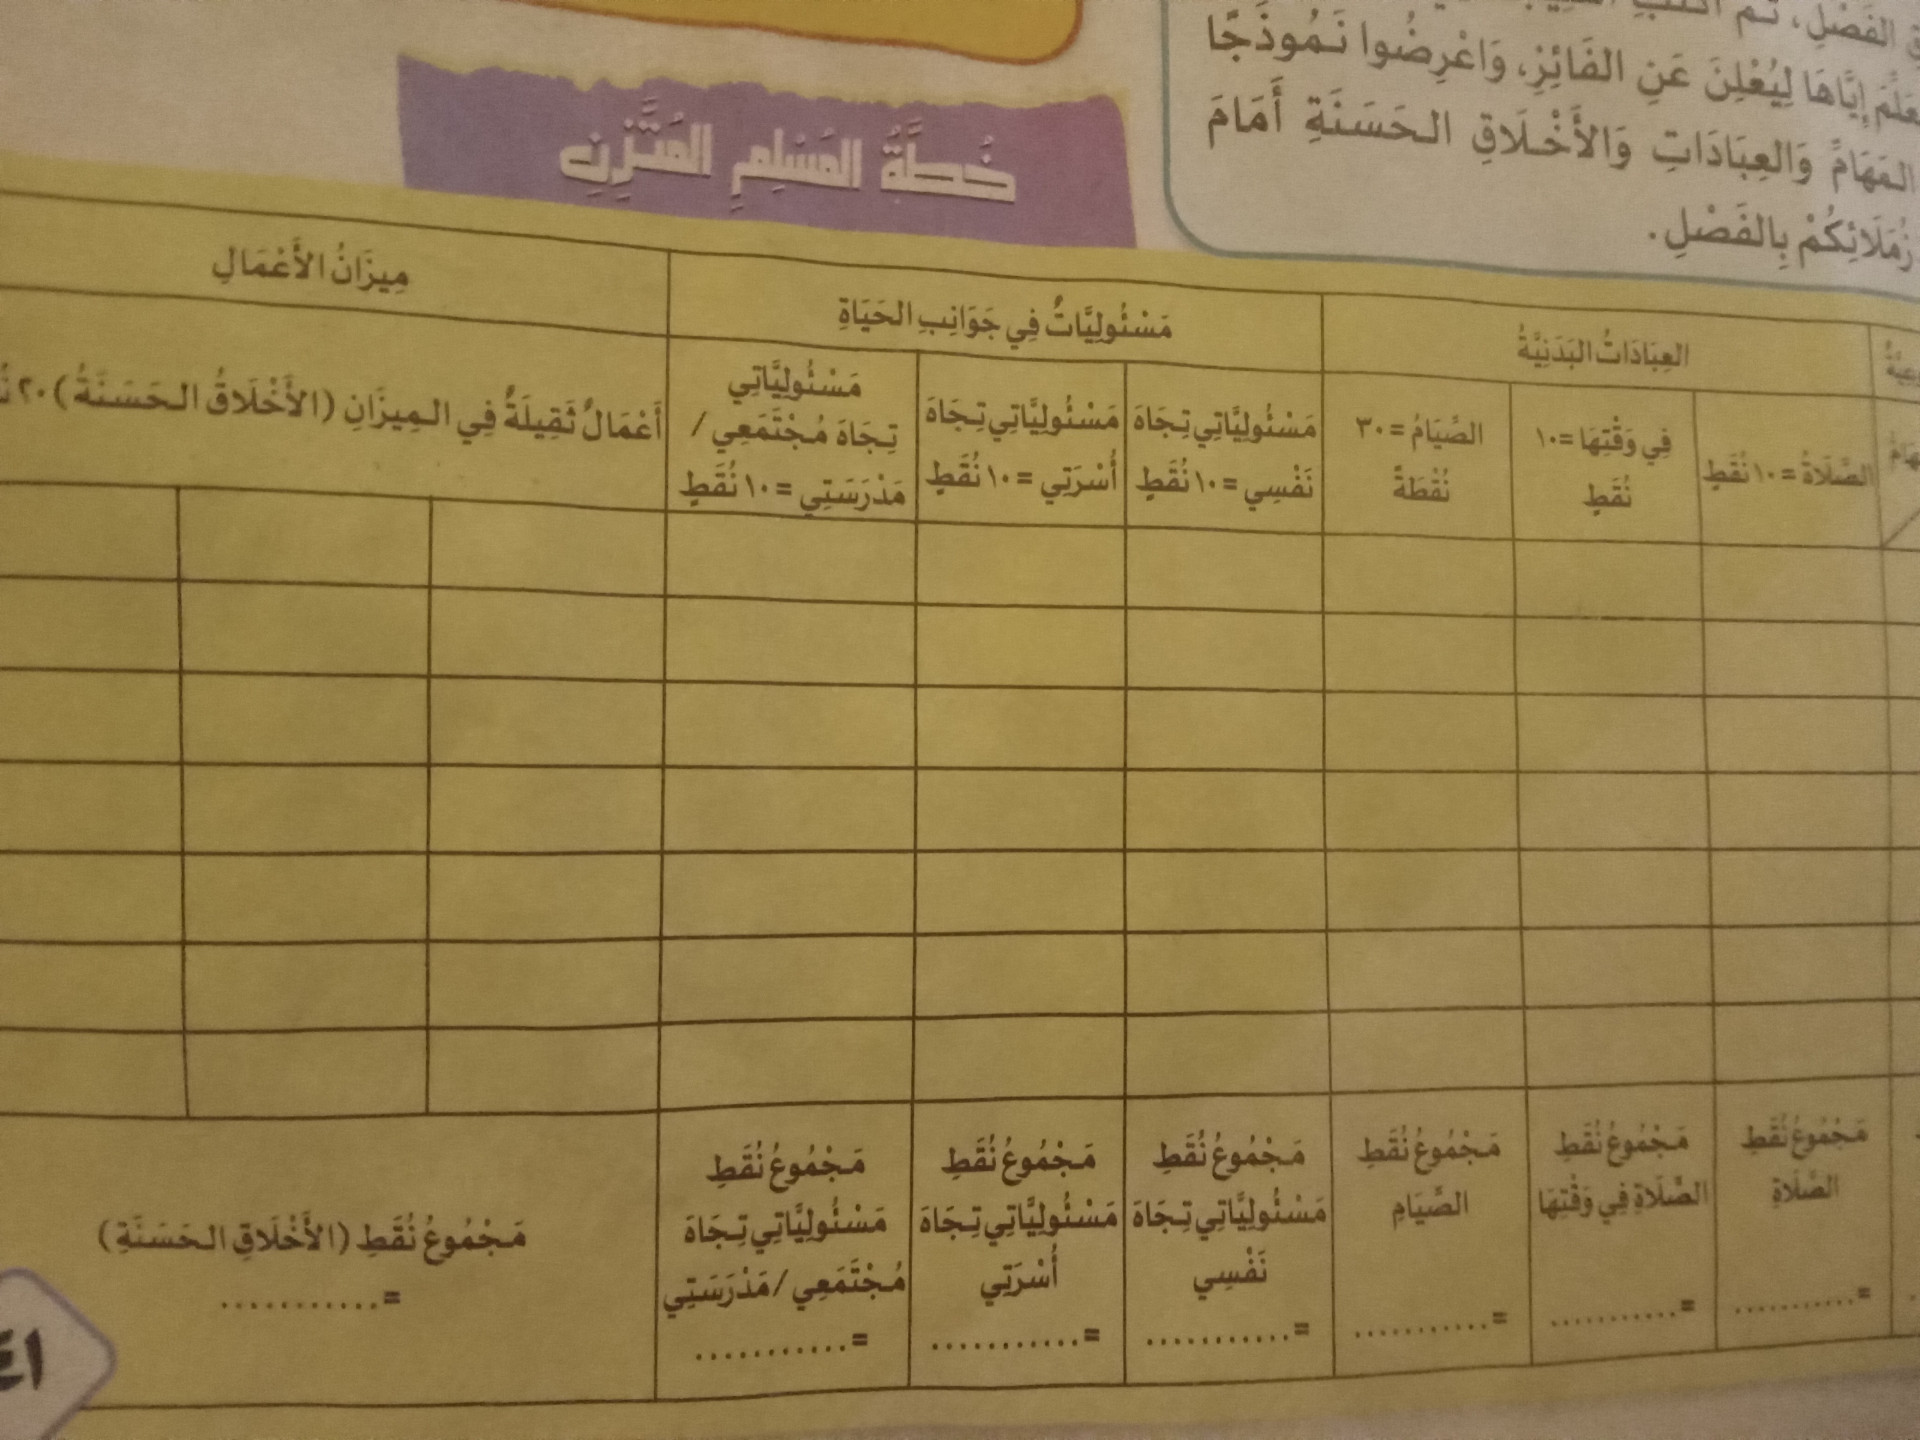 الفَصْلِ، ثُمَّ
إِيَّاهَا لِيُعْلِنَ عَنِ الفَائِزِ، وَاعْرِضُوا نَمُوذَجًا
المَهَامِّ وَالعِبَادَاتِ وَالأَخْلَاقِ الحَسَنَةِ أَمَامَ
زُمَلَائِكُمْ بِالفَصْلِ.
خُطَّةُ المُسْلِمِ المُتَّزِنِ
العِبَادَاتُ البَدَنِيَّةُ
مَسْئُولِيَّاتٌ فِي جَوَانِبِ الحَيَاةِ
مِيزَانُ الأَعْمَالِ
الصَّلَاةُ = ١٠ نُقَطٍ
فِي وَقْتِهَا = ١٠
نُقَطٍ
الصِّيَامُ = ٣٠
نُقْطَةً
مَسْئُولِيَّاتِي تِجَاهَ
نَفْسِي = ١٠ نُقَطٍ
مَسْئُولِيَّاتِي تِجَاهَ
أُسْرَتِي = ١٠ نُقَطٍ
مَسْئُولِيَّاتِي
تِجَاهَ مُجْتَمَعِي /
مَدْرَسَتِي = ١٠ نُقَطٍ
أَعْمَالٌ ثَقِيلَةٌ فِي المِيزَانِ (الأَخْلَاقُ الحَسَنَةُ) ٢٠
مَجْمُوعُ نُقَطِ
الصَّلَاةِ
=...........
مَجْمُوعُ نُقَطِ
الصَّلَاةِ فِي وَقْتِهَا
=...........
مَجْمُوعُ نُقَطِ
الصِّيَامِ
=...........
مَجْمُوعُ نُقَطِ
مَسْئُولِيَّاتِي تِجَاهَ
نَفْسِي
=...........
مَجْمُوعُ نُقَطِ
مَسْئُولِيَّاتِي تِجَاهَ
أُسْرَتِي
=...........
مَجْمُوعُ نُقَطِ
مَسْئُولِيَّاتِي تِجَاهَ
مُجْتَمَعِي / مَدْرَسَتِي
=...........
مَجْمُوعُ نُقَطِ (الأَخْلَاقِ الحَسَنَةِ)
=...........
٤١